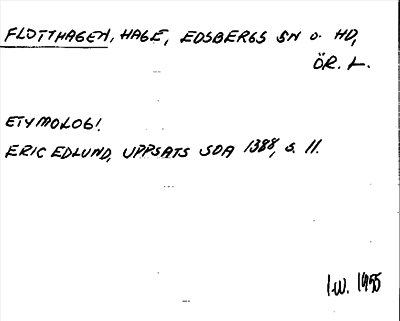 FLOTTHAGEN, HAGE, EDSBERGS SN O. HD,
ÖR. L.
ETYMOLOGI.
ERIC EDLUND, UPPSATS SOA 1388, S. 11.
I.W. 1955